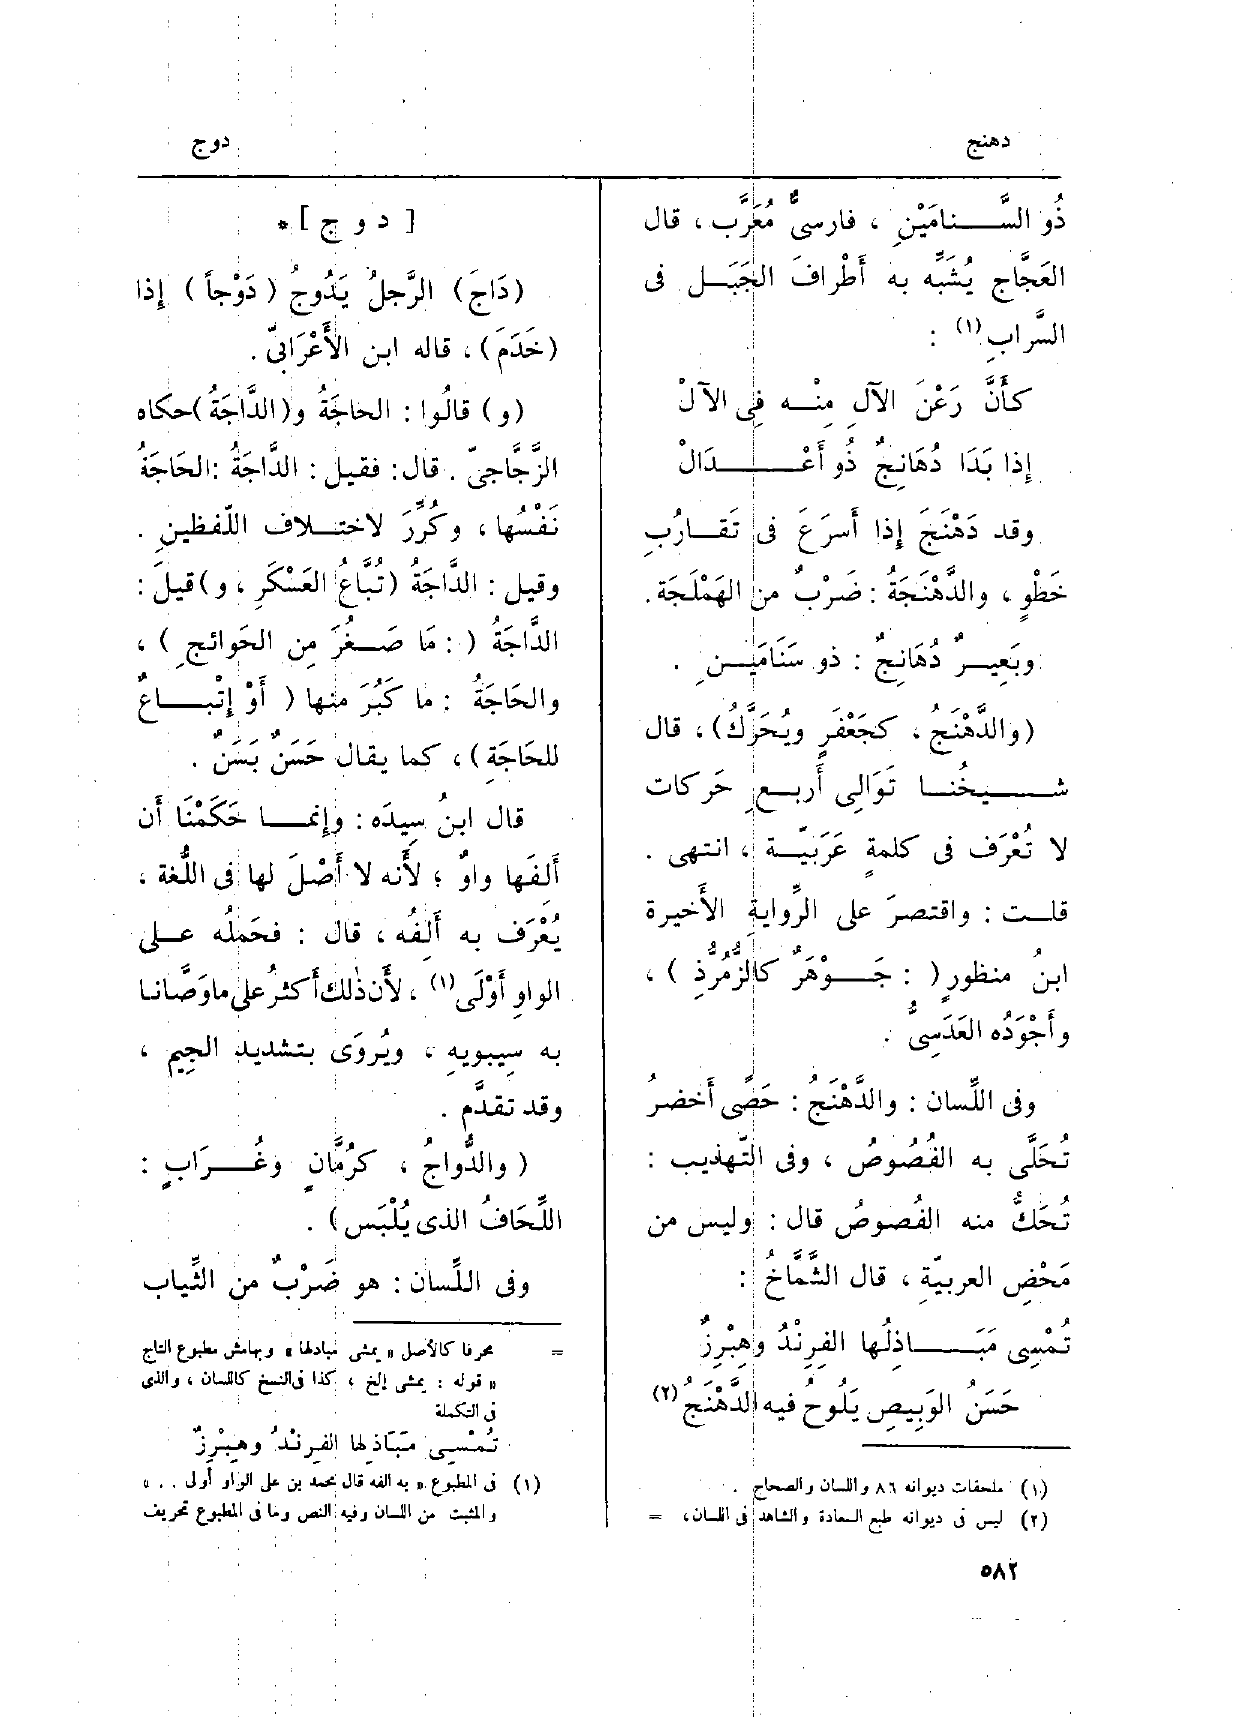 دهنج
دوج
ذُو السَّنامَيْنِ ، فارسىٌّ مُعَرَّب ، قال
العَجّاج يُشَبِّه به أَطْرافَ الجَبَل فى
السَّرابِ(١) :
كأَنَّ رَعْنَ الآلِ مِنْه فِى الآلْ
إِذا بَدَا دُهَانِجٌ ذُو أَعْدَالْ
وقد دَهْنَجَ إِذا أَسرَعَ فى تَقَارُبِ
خَطْوٍ ، والدَّهْنَجَةُ : ضَرْبٌ من الهَمْلَجة .
وبَعِيرٌ دُهَانِجٌ : ذو سَنَامَيْنِ .
(والدَّهْنَجُ ، كجَعْفَرٍ ويُحَرَّكُ) ، قال
شيخُنا تَوَالِى أَربعِ حَركات
لا تُعْرَف فى كلمةٍ عَرَبِيّة ، انتهى .
قلت : واقتصرَ على الرِّوايةِ الأَخيرة
ابنُ منظورٍ ( : جَوْهَرٌ كالزُّمُرُّذِ ) ،
وأَجْوَدُه العَدَسِىُّ .
وفى اللِّسان : والدَّهْنَجُ : حَصًى أَخضرُ
تُحَلَّى به الفُصُوصُ ، وفى التّهذيب :
تُحَكُّ منه الفُصوصُ قال : وليس من
مَحْضِ العربيّةِ ، قال الشَّمَّاخُ :
تُمْسِى مَبَاذِلُها الفِرِنْدُ وهِبْرِزٌ
حَسَنُ الوَبِيصِ يَلُوحُ فيه الدَّهْنَجُ(٢)
(١) ملحقات ديوانه ٨٦ واللسان والصحاح .
(٢) ليس فى ديوانه طبع السعادة والشاهد فى اللسان ، =
[ د و ج ] *
(دَاجَ) الرَّجلُ يَدُوجُ ( دَوْجاً ) إِذا
(خَدَمَ) ، قاله ابن الأَعْرَابىّ .
(و) قالُوا : الحاجَةُ و(الدَّاجَةُ) حكاه
الزَّجّاجىّ . قال : فقيل : الدَّاجَةُ : الحَاجَةُ
نَفْسُها ، وكُرِّرَ لاختلاف اللّفظينِ .
وقيل : الدَّاجَةُ (تُبَّاعُ العَسْكَرِ ، و) قيلَ :
الدَّاجَةُ ( : مَا صَغُرَ مِن الحَوائجِ ) ،
والحَاجَةُ : ما كَبُرَ منها ( أَوْ إِتْبَاعٌ
للحَاجَةِ ) ، كما يقال حَسَنٌ بَسَنٌ .
قال ابنُ سِيدَه : وإِنما حَكَمْنَا أَن
أَلفَها واوٌ ؛ لأَنه لا أَصْلَ لها فى اللُّغة ،
يُعْرَف به أَلِفُه ، قال : فحَمْلُه على
الواوِ أَوْلَى(١) ، لأَن ذٰلك أَكثرُ على ماوَصَّانا
به سِيبويهِ ، ويُروَى بتشديد الجِيم ،
وقد تقدَّم .
( والدُّواجُ ، كرُمَّانٍ وغُرَابٍ :
اللِّحَافُ الذى يُلْبَس ) .
وفى اللِّسان : هو ضَرْبٌ من الثِّياب
= محرفا كالأصل « يمشى مباذلها » وبهامش مطبوع التاج
« قوله : يمشى إلخ ، كذا فى النسخ كاللسان ، والذى
فى التكملة
تُمْسِى مَبَاذلها الفرنْدُ وهِبْرِزٌ
(١) فى المطبوع « به الفه قال محمد بن على الواو أولى . . »
والمثبت من اللسان وفيه النص وما فى المطبوع تحريف
٥٨٢